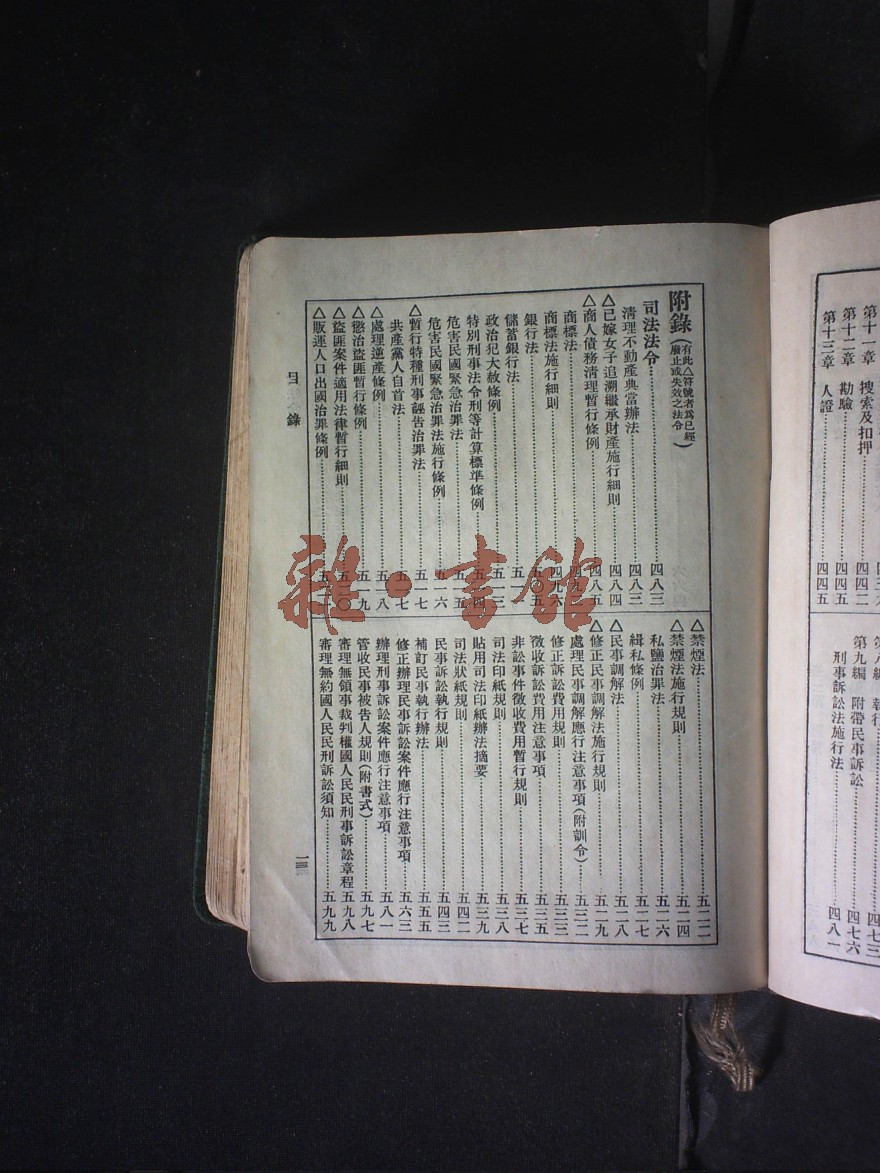 第十一章　搜索及扣押
四四二
第十二章　勘驗
四四五
第十三章　人證
四四五
第九編　附帶民事訴訟
四七六
刑事訴訟法施行法
四八一
附錄（有此△符號者爲已經廢止或失效之法令）
司法法令
四八三
清理不動產典當辦法
四八三
△已嫁女子追溯繼承財產施行細則
四八四
△商人債務清理暫行條例
四八五
商標法
商標法施行細則
四九六
銀行法
五〇五
儲蓄銀行法
政治犯大赦條例
特別刑事法令刑等計算標準條例
危害民國緊急治罪法
危害民國緊急治罪法施行條例
五一六
△暫行特種刑事誣告治罪法
五一七
共產黨人自首法
五一七
△處理逆產條例
五一八
△懲治盜匪暫行條例
五一九
△盜匪案件適用法律暫行細則
△販運人口出國治罪條例
△禁煙法
五二二
△禁煙法施行規則
五二四
私鹽治罪法
五二六
緝私條例
五二七
△民事調解法
五二八
△修正民事調解法施行規則
五二九
處理民事調解應行注意事項（附訓令）
五三二
修正訴訟費用規則
五三三
徵收訴訟費用注意事項
五三五
非訟事件徵收費用暫行規則
五三七
司法印紙規則
五三八
貼用司法印紙辦法摘要
五三九
司法狀紙規則
五四二
民事訴訟執行規則
五四三
補訂民事執行辦法
五五五
修正辦理民事訴訟案件應行注意事項
五六三
辦理刑事訴訟案件應行注意事項
五八一
管收民事被告人規則（附書式）
五九七
審理無領事裁判權國人民民刑事訴訟章程
五九八
審理無約國人民民刑訴訟須知
五九九
目錄
一三
雜·書館